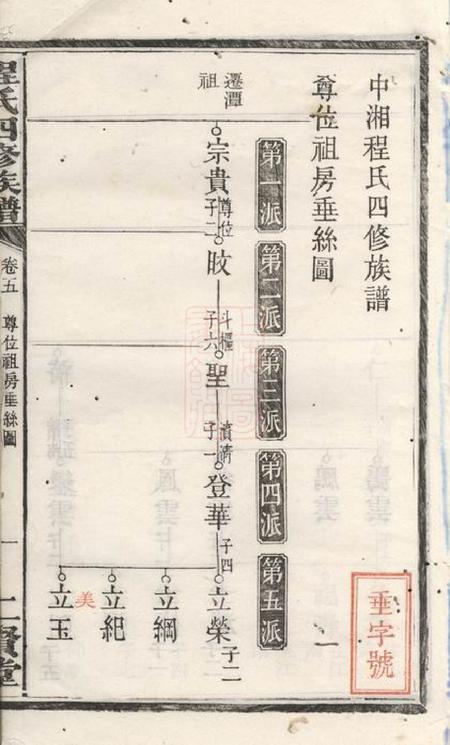 中湘程氏四修族譜
尊位祖房垂絲圖
垂字號
第一派
第二派
第三派
第四派
第五派
一
遷潭祖
宗貴
尊位
子二
旼
斗樞
子六
聖
濱清
子一
登華
子四
立榮
子二
立綱
立紀
美
立玉
程氏四修族譜
卷五
尊位祖房垂絲圖
一
二賢堂